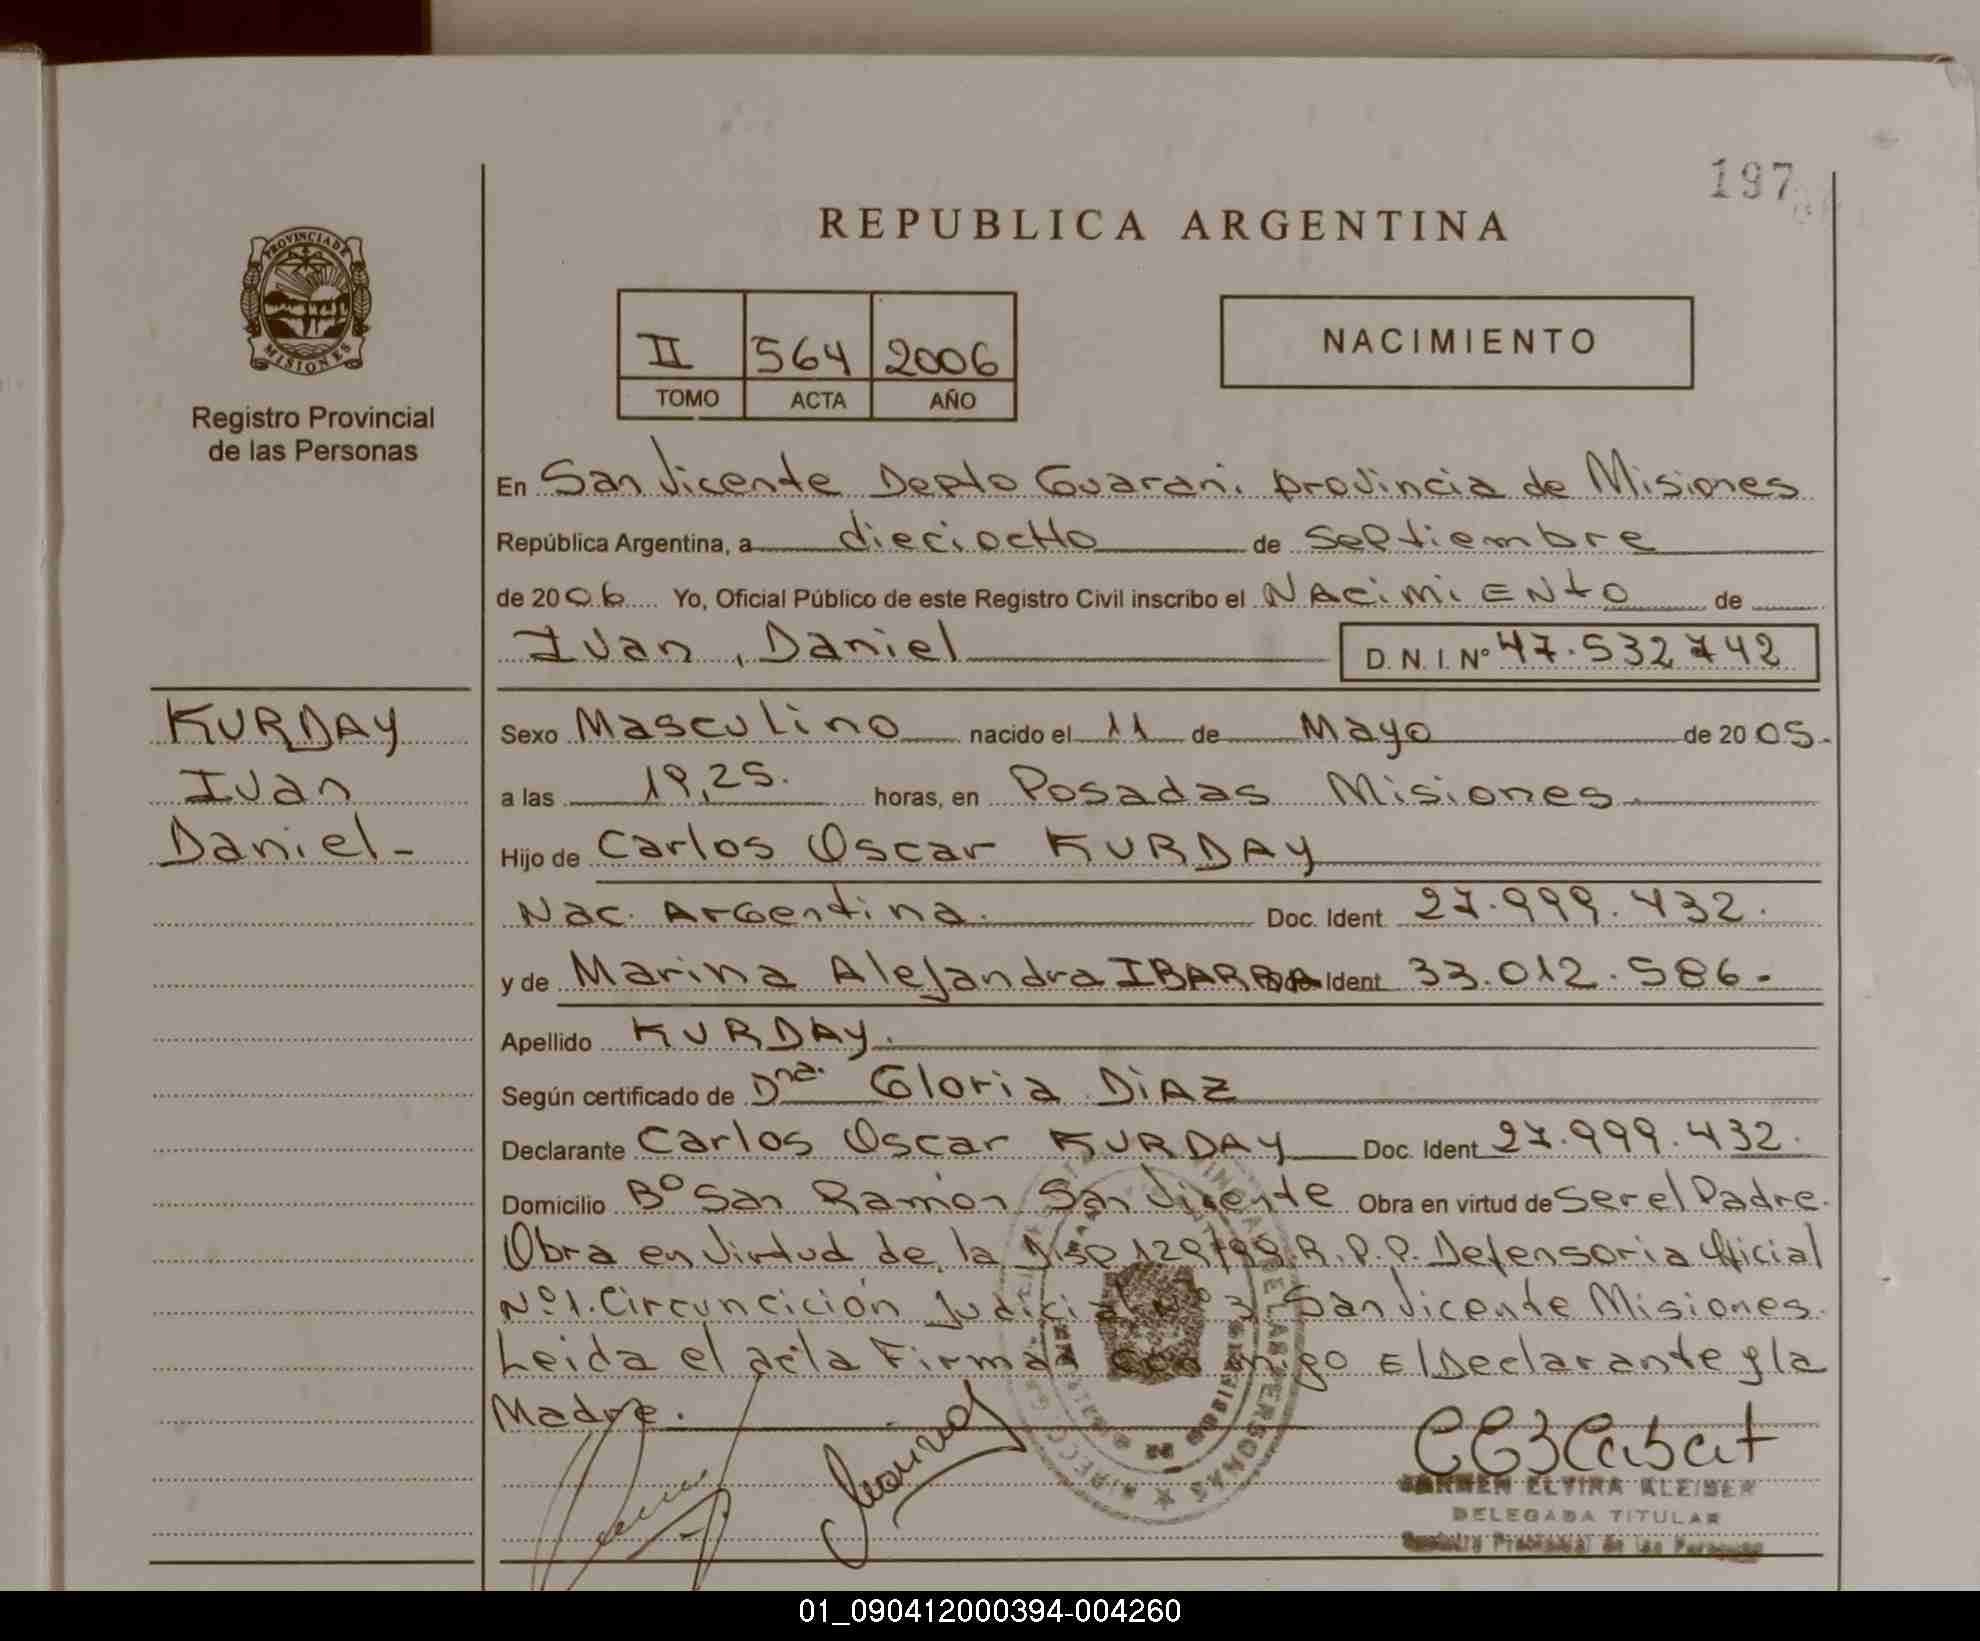 197
REPUBLICA ARGENTINA
PROVINCIA DE
MISIONES
Registro Provincial
de las Personas
II 564 2006
TOMO ACTA AÑO
NACIMIENTO
En San Vicente Depto Guarani provincia de Misiones
República Argentina, a dieciocHo de Septiembre
de 2006 Yo, Oficial Público de este Registro Civil inscribo el NAcimiENto de
Ivan, Daniel D. N. I. Nº 47.532742
KURDAY
Ivan
Daniel-
Sexo Masculino nacido el 11 de Mayo de 2005.
a las 19,25. horas, en Posadas Misiones
Hijo de Carlos Oscar KURDAY
Nac. Argentina. Doc. Ident 27.999.432.
y de Marina Alejandra IBARRA Ident 33.012.586-
Apellido KURDAY.
Según certificado de Dna. Gloria DiAZ
Declarante Carlos Oscar KURDAY Doc. Ident 27.999.432.
Domicilio Bº San Ramón San Vicente Obra en virtud de Ser el Padre.
Obra en Virtud de la Disp 129/99 R.P.P. Defensoria Oficial
Nº1. Circuncición Judicial Nº 3 San Vicente Misiones.
Leida el acta Firman con migo El Declarante y la
Madre.
CARMEN ELVIRA KLEIBER
DELEGADA TITULAR
Registro Provincial de las Personas
01_090412000394-004260